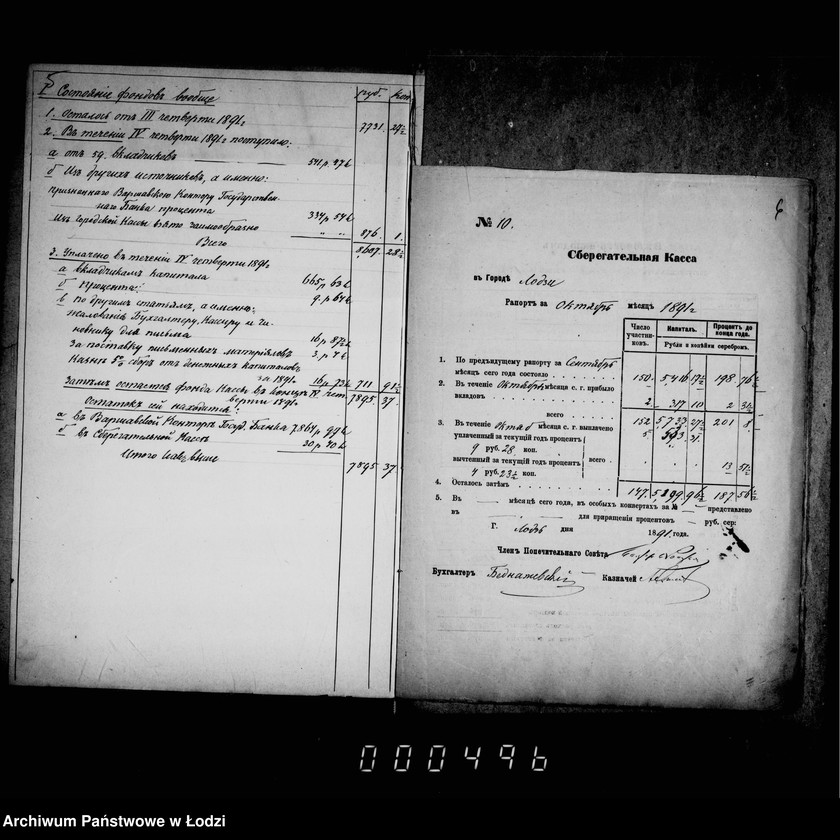 5
I Состояніе фондовъ вообще
руб. коп
1. Осталось отъ III четверти 1891г 7731. 27½
2. Въ теченіи IV четверти 1891г поступило:
а отъ 59. вкладчиковъ 541р 47к
б Изъ другихъ источниковъ, а именно:
признаннаго Варшавскою Конторою Государствен-
наго Банка процента 334р 54к
Изъ Городской Кассы взято заимообразно " "
876 1.
Всего 8607. 28½
3. Уплачено въ теченіи IV четверти 1891г
а вкладчикамъ капитала 665р 63к
б Процента: 9р 64к
в по другимъ статьямъ, а именно:
жалованіе Бухгалтеру, Кассиру и чи-
новнику для письма 16р 87½
За поставку письменныхъ матеріяловъ 3р 7к
Казнѣ 5% сбора отъ денежныхъ капиталовъ
за 1891г 16р 73к 711 91½
Затѣмъ остается фонда Кассы въ концѣ IV чет
верти 1891г 7895 37.
Остатокъ сей находится:
а въ Варшавской Конторѣ Госуд. Банка 7,864р 97к
б въ Сберегательной Кассѣ 30р 40к
Итого какъ выше 7895 37.
6
№ 10.
Сберегательная Касса
въ Городѣ Лодзи
Рапортъ за Октябрь мѣсяцъ 1891г
Число участни-ковъ.
Капиталъ.
Процентъ до конца года.
Рубли и копѣйки серебромъ.
1. По предъидущему рапорту за Сентябрь
мѣсяцъ сего года состояло 150. 5,416 17½ 198 76½
2. Въ теченіе Октября мѣсяца с. г. прибыло
вкладовъ 2 317 10 2 31½
всего 152 5733 27½ 201 8
3. Въ теченіе мѣсяца с. г. выплачено 5
уплаченный за текущій годъ процентъ
9 руб. 28 коп.
всего
вычтенный за текущій годъ процентъ
4 руб. 23½ коп. 13 51½
4. Осталось затѣмъ 147. 5,199. 96½ 187 56½
5. Въ — мѣсяцѣ сего года, въ особыхъ конвертахъ за № — представлено
въ — для приращенія процентовъ — руб. сер:
Г. Лодзь дня 1891. года.
Членъ Попечительнаго Совѣта
Бухгалтеръ Казначей
000496
Archiwum Państwowe w Łodzi